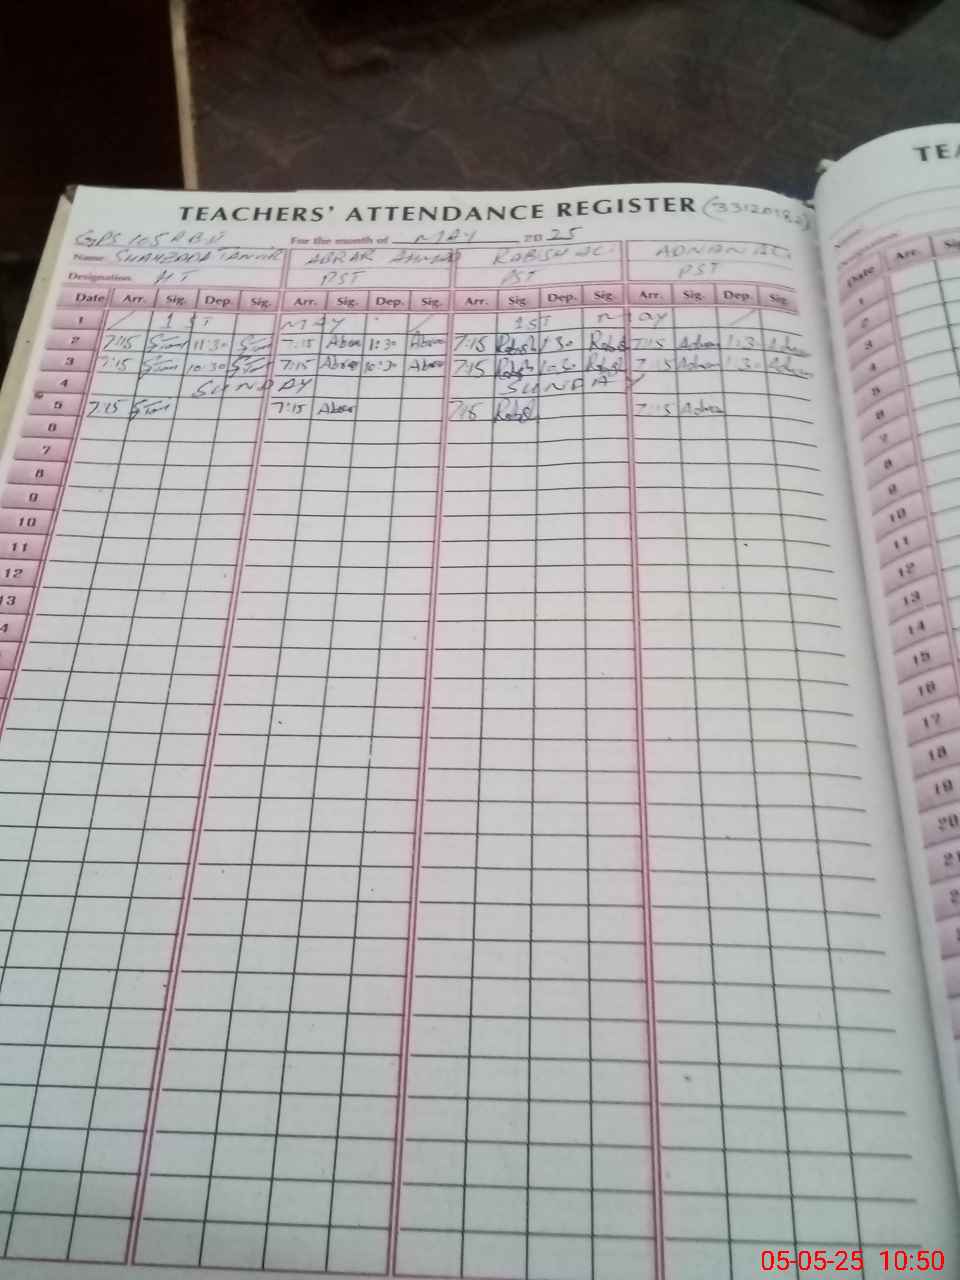 TEACHERS' ATTENDANCE REGISTER (33120182)
GPS 105 R.B.
For the month of MAY 2025
Name SHAHZADA TANVIR ABRAR AHMAD RABISH ALI ADNAN ALI
Designation HT PST PST PST
Date Arr. Sig. Dep. Sig. Arr. Sig. Dep. Sig. Arr. Sig Dep. Sig. Arr. Sig. Dep. Sig.
1 1ST MAY 1ST MAY
2 7:15 11:30 7:15 Abrar 11:30 Abrar 7:15 Rabish 1:30 Rabish 7:15 Adnan 1:30 Adnan
3 7:15 10:30 7:15 Abrar 10:30 Abrar 7:15 Rabish 10:30 Rabish 7:15 Adnan Adnan
4 SUNDAY SUNDAY
5 7:15 7:15 Abrar 7:15 Rabish 7:15 Adnan
6
7
8
9
10
11
12
13
4
TEA
Name
Designation
Date Arr. Si
1
2
3
4
5
6
7
8
9
10
11
12
13
14
15
16
17
18
19
20
21
05-05-25 10:50